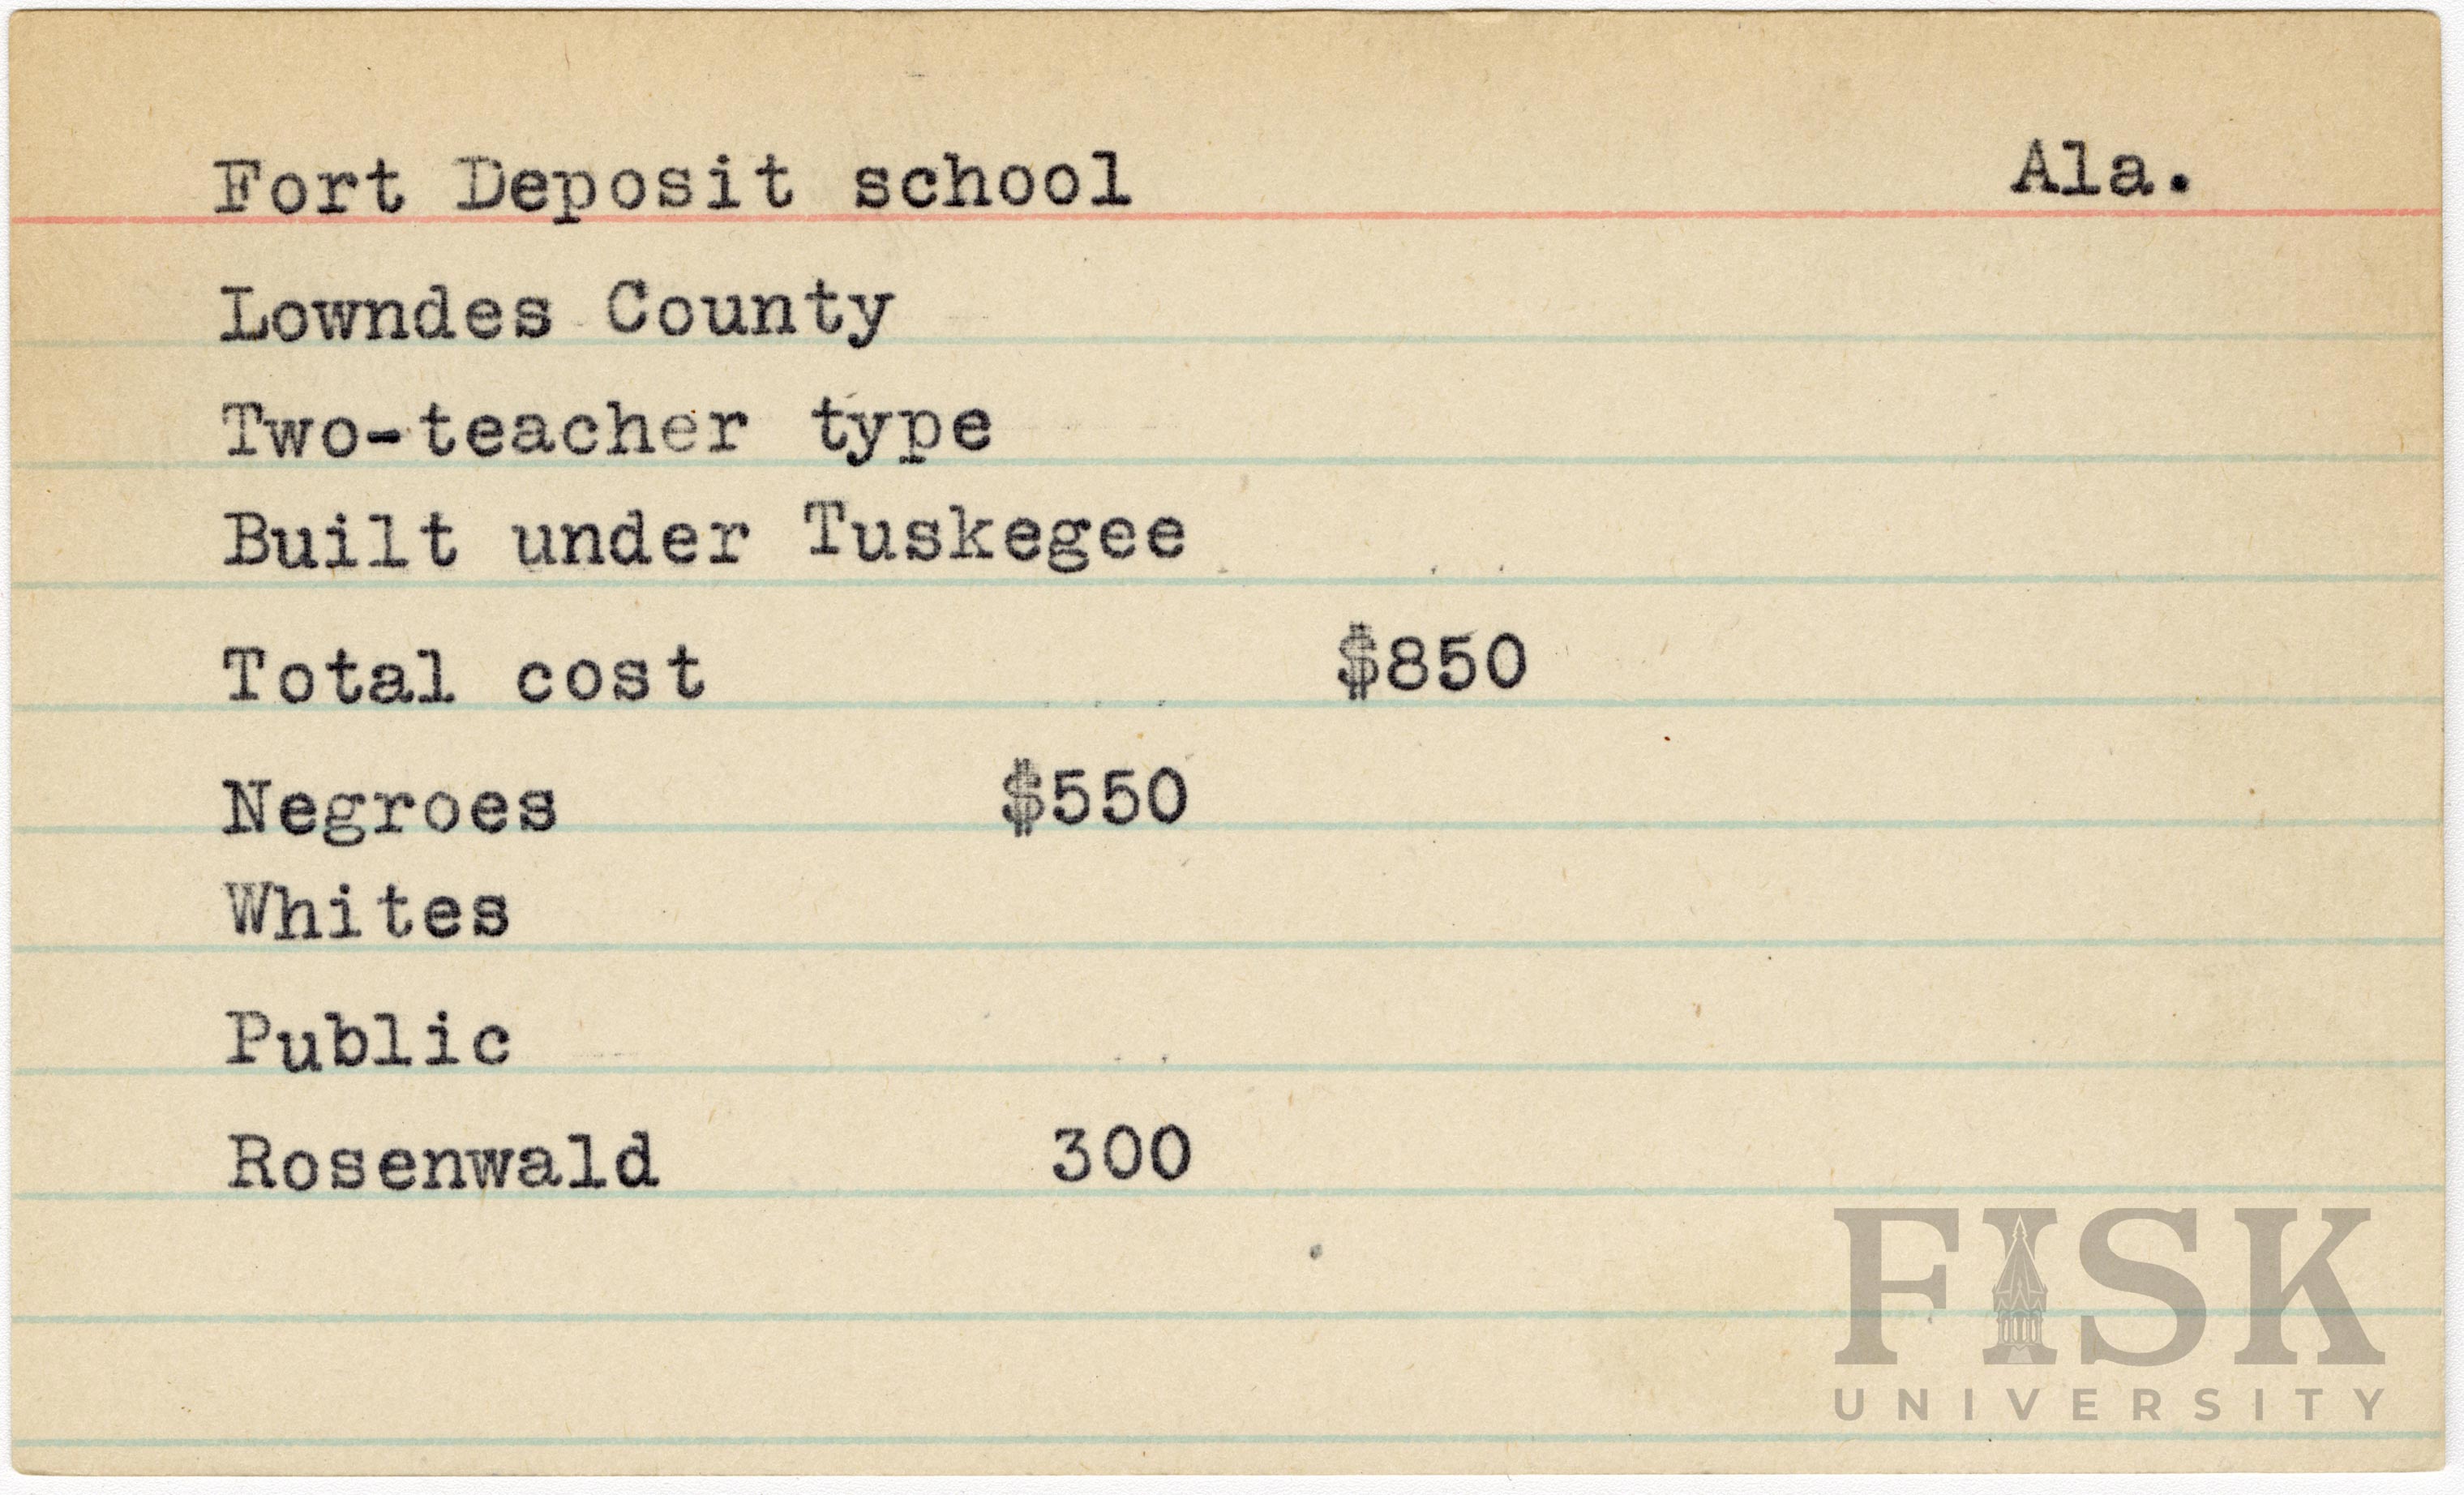 Fort Deposit school Ala.
Lowndes County
Two-teacher type
Built under Tuskegee
Total cost $850
Negroes $550
Whites
Public
Rosenwald 300
FISK
UNIVERSITY